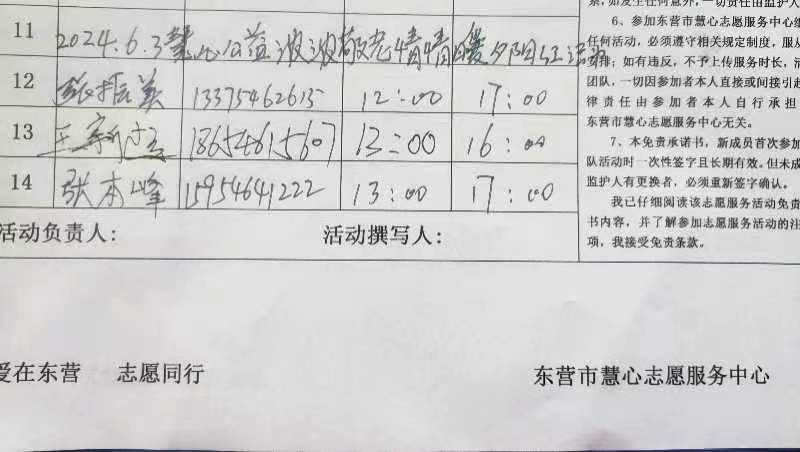 11 2024.6.3慧心公益波波敬老情情暖夕阳红活动
12 张振美 13375462615 12:00 17:00
13 王新 18654615607 13:00 16:00
14 张本峰 15954641222 13:00 17:00
活动负责人: 活动撰写人:
爱在东营 志愿同行 东营市慧心志愿服务中心
系,如发生任何意外,一切责任由监护人
6、参加东营市慧心志愿服务中心组
任何活动,必须遵守相关规定制度,服从
排;如有违反,不予上传服务时长,清
团队,一切因参加者本人直接或间接引起
律责任由参加者本人自行承担
东营市慧心志愿服务中心无关。
7、本免责承诺书,新成员首次参加
队活动时一次性签字且长期有效。但未成
监护人有更换者,必须重新签字确认。
我已仔细阅读该志愿服务活动免责
书内容,并了解参加志愿服务活动的注
项,我接受免责条款。